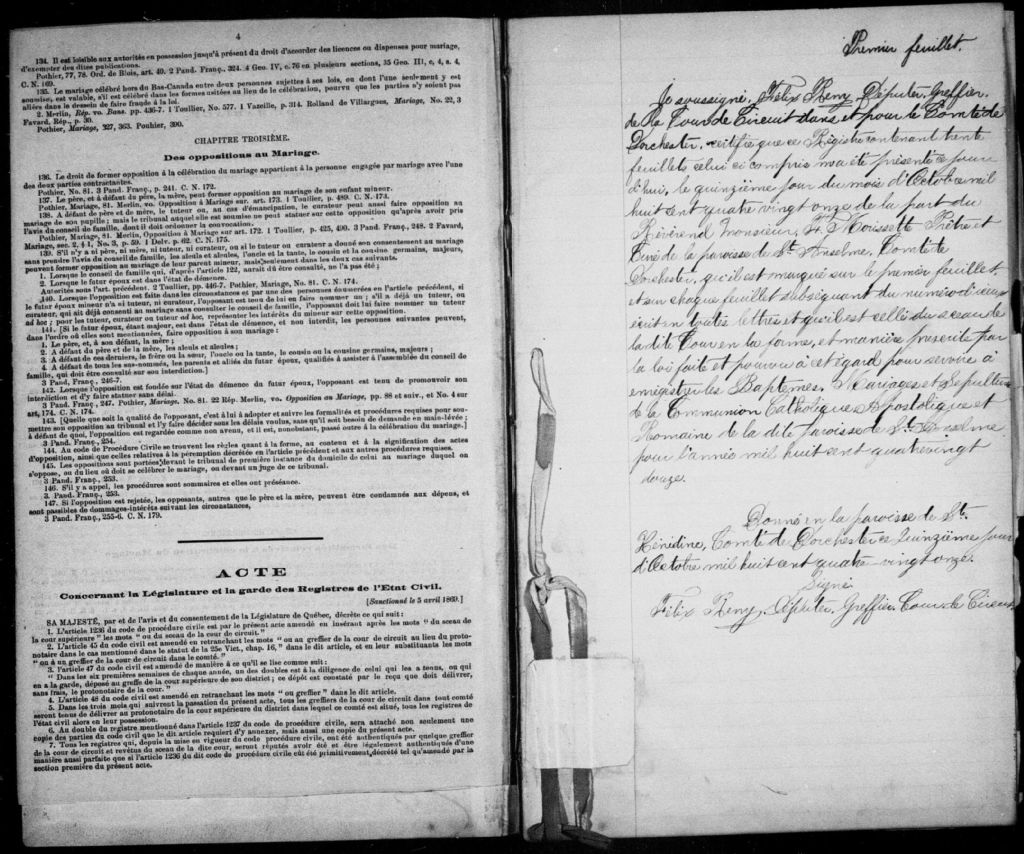 4
134. Il est loisible aux autorités en possession jusqu'à présent du droit d'accorder des licences ou dispenses pour mariage,
d'exempter des dites publications.
Pothier, 77, 78. Ord. de Blois, art. 40. 2 Pand. Franç., 324. 4 Geo. IV, c. 76 en plusieurs sections, 35 Geo. III, c, 4, s. 4,
C. N. 169.
135. Le mariage célébré hors du Bas-Canada entre deux personnes sujettes à ses lois, ou dont l'une seulement y est
soumise, est valable, s'il est célébré dans les formes usitées au lieu de la célébration, pourvu que les parties n'y soient pas
allées dans le dessein de faire fraude à la loi.
2. Merlin, Rép. vo. Bans. pp. 436-7. 1 Toullier, No. 577. 1 Vazeille, p. 314. Rolland de Villargues, Mariage, No. 22, 3
Favard, Rép., p. 30.
Pothier, Mariage, 327, 363. Pouhier, 390.
CHAPITRE TROISIÈME.
Des oppositions au Mariage.
136. Le droit de former opposition à la célébration du mariage appartient à la personne engagée par mariage avec l'une
des deux parties contractantes.
Pothier, No. 81. 3 Pand. Franç., p. 241. C. N. 172.
137. Le père, et à défaut du père, la mère, peut former opposition au mariage de son enfant mineur.
Pothier, Mariage, 81. Merlin, vo. Opposition à Mariage sur. art. 173. 1 Toullier, p. 489. C. N. 174.
138. A défaut de père et de mère, le tuteur ou, au cas d'émancipation, le curateur peut aussi faire opposition au
mariage de son pupille; mais le tribunal auquel elle est soumise ne peut statuer sur cette opposition qu'après avoir pris
l'avis du conseil de famille, dont il doit ordonner la convocation.
Pothier, Mariage, 81. Merlin, Opposition à Mariage sur art. 172. 1 Toullier, p. 425, 490. 3 Pand. Franç., 248. 2 Favard,
Mariage, sec. 2, § 1, No. 3, p. 59. 1 Delv. p. 62. C. N. 175.
139. S'il n'y a ni père, ni mère, ni tuteur, ni curateur, ou si le tuteur ou curateur a donné son consentement au mariage
sans prendre l'avis du conseil de famille, les aïeuls et aïeules, l'oncle et la tante, le cousin et la cousine germains, majeurs,
peuvent former opposition au mariage de leur parent mineur, mais seulement dans les deux cas suivants.
1. Lorsque le conseil de famille qui, d'après l'article 122, aurait dû être consulté, ne l'a pas été;
2. Lorsque le futur époux est dans l'état de démence.
Autorités sous l'art. précédent. 2 Toullier, pp. 446-7. Pothier, Mariage, No. 81. C. N. 174.
140. Lorsque l'opposition est faite dans ces circonstances et par une des personnes énumérées en l'article précédent, si
le futur époux mineur n'a ni tuteur, ni curateur, l'opposant est tenu de lui en faire nommer un; s'il a déjà un tuteur, ou
curateur, qui ait déjà consenti au mariage sans consulter le conseil de famille, l'opposant doit lui faire nommer un tuteur
ad hoc; pour les tuteur, curateur ou tuteur ad hoc, représenter les intérêts du mineur sur cette opposition.
141. [Si le futur époux, étant majeur, est dans l'état de démence, et non interdit, les personnes suivantes peuvent,
dans l'ordre où elles sont mentionnées, faire opposition à son mariage:
1. Le père, et, à son défaut, la mère;
2. A défaut du père et de la mère, les aïeuls et aïeules;
3. A défaut de ces derniers, le frère ou la sœur, l'oncle ou la tante, le cousin ou la cousine germains, majeurs;
4. A défaut de tous les sus-nommés, les parents et alliés du futur époux, qualifiés à assister à l'assemblée du conseil de
famille, qui doit être consulté sur son interdiction.]
3 Pand. Franç., 246-7.
142. Lorsque l'opposition est fondée sur l'état de démence du futur époux, l'opposant est tenu de promouvoir son
interdiction et d'y faire statuer sans délai.
3 Pand. Franç., 247. Pothier, Mariage, No. 81. 22 Rép. Merlin, vo. Opposition au Mariage, pp. 88 et suiv., et No. 4 sur
art, 174. C. N. 174.
143. [Quelle que soit la qualité de l'opposant, c'est à lui à adopter et suivre les formalités et procédures requises pour sou-
mettre son opposition au tribunal et l'y faire décider sous les délais voulus, sans qu'il soit besoin de demande en main-levée;
à défaut de quoi, l'opposition est regardée comme non avenue, et il est, nonobstant, passé outre à la célébration du mariage.]
3 Pand. Franç., 254.
144. Au code de Procédure Civile se trouvent les règles quant à la forme, au contenu et à la signification des actes
d'opposition, ainsi que celles relatives à la péremption décrétée en l'article précédent et aux autres procédures requises.
145. Les oppositions sont portées devant le tribunal de première instance du domicile de celui au mariage duquel on
s'oppose, ou du lieu où doit se célébrer le mariage, ou devant un juge de ce tribunal.
3 Pand. Franç., 253.
146. S'il y a appel, les procédures sont sommaires et elles ont préséance.
3. Pand. Franç., 253.
147. Si l'opposition est rejetée, les opposants, autres que le père et la mère, peuvent être condamnés aux dépens, et
sont passibles de dommages-intérêts suivant les circonstances,
3 Pand. Franç., 255-6. C. N. 179.
ACTE
Concernant la Législature et la garde des Registres de l'Etat Civil.
[Sanctionné le 5 avril 1869.]
SA MAJESTÉ, par et de l'avis et du consentement de la Législature de Québec, décrète ce qui suit:
1. L'article 1236 du code de procédure civile est par le présent acte amendé en insérant après les mots "du sceau de
la cour supérieure" les mots "ou du sceau de la cour de circuit."
2. L'article 45 du code civil est amendé en retranchant les mots "ou au greffier de la cour de circuit au lieu du proto-
notaire dans le cas mentionné dans le statut de la 25e Vict., chap. 16," dans le dit article, et en leur substituants les mots
"ou à un greffier de la cour de circuit dans le comté."
3. l'article 47 du code civil est amendé de manière à ce qu'il se lise comme suit:
"Dans les six premières semaines de chaque année, un des doubles est à la diligence de celui qui les a tenus, ou qui
en a la garde, déposé au greffe de la cour supérieure de son district; ce dépôt est constaté par le reçu que doit délivrer,
sans frais, le protonotaire de la cour."
4. L'article 48 du code civil est amendé en retranchant les mots "ou greffier" dans le dit article.
5. Dans les trois mois qui suivront la passation du présent acte, tous les greffiers de la cour de circuit dans tout comté
seront tenus de délivrer au protonotaire de la cour supérieure du district dans lequel ce comté est situé, tous les registres de
l'état civil alors en leur possession.
6. Au double du registre mentionné dans l'article 1237 du code de procédure civile, sera attaché non seulement une
copie des parties du code civil que le dit article requiert d'y annexer, mais aussi une copie du présent acte.
7. Tous les registres qui, depuis la mise en vigueur du code de procédure civile, ont été authentiqués par quelque greffier
de la cour de circuit et revêtus du sceau de la dite cour, seront réputés avoir été et être légalement authentiqués d'une
manière aussi parfaite que si l'article 1236 du dit code de procédure civile eût été primitivement décrété tel qu'amendé par la
section première du présent acte.
Premier feuillet.
Je soussigné, Félix Remy Député-Greffier
de la Cour de Circuit dans et pour le Comté de
Dorchester, certifie que ce Régistre contenant trente
feuillets celui ci compris m'a été présenté ce jour
d'hui, le quinzième jour du mois d'Octobre mil
huit cent quatre vingt onze de la part du
Révérend Monsieur, F. Roussette Prêtre et
Curé de la paroisse de St. Anselme, Comté de
Dorchester, qu'il est marqué sur le premier feuillet
et sur chaque feuillet subséquant du numéro d'iceux
écrit en toutes lettres et qu'il est cellé du sceau de
la dite Cour en la forme, et manière presente par
la loi faite et pourvu à cet égard pour servir à
enregistrer les Baptêmes, Mariages et Sépultures
de la Communion Catholique Apostolique et
Romaine de la dite paroisse de St. Anselme
pour l'année mil huit cent quatre vingt
douze.
Donné en la paroisse de Ste.
Hénédine, Comté de Dorchester ce Quinzième jour
d'Octobre mil huit cent quatre-vingt onze.
Signé
Félix Remy, Député Greffier Cour de Circuit